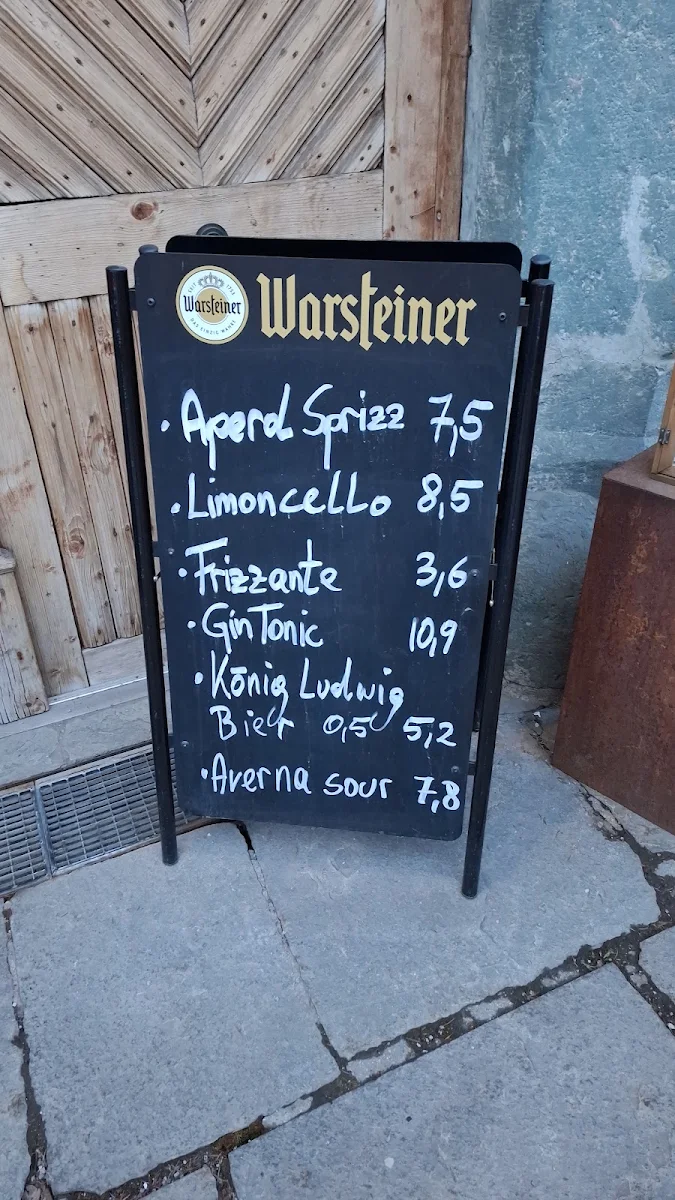 SEIT 1753
Warsteiner
DAS EINZIG WAHRE
Warsteiner
· Aperol Sprizz 7,5
· Limoncello 8,5
· Frizzante 3,6
· Gin Tonic 10,9
· König Ludwig
Bier 0,5 5,2
· Averna sour 7,8